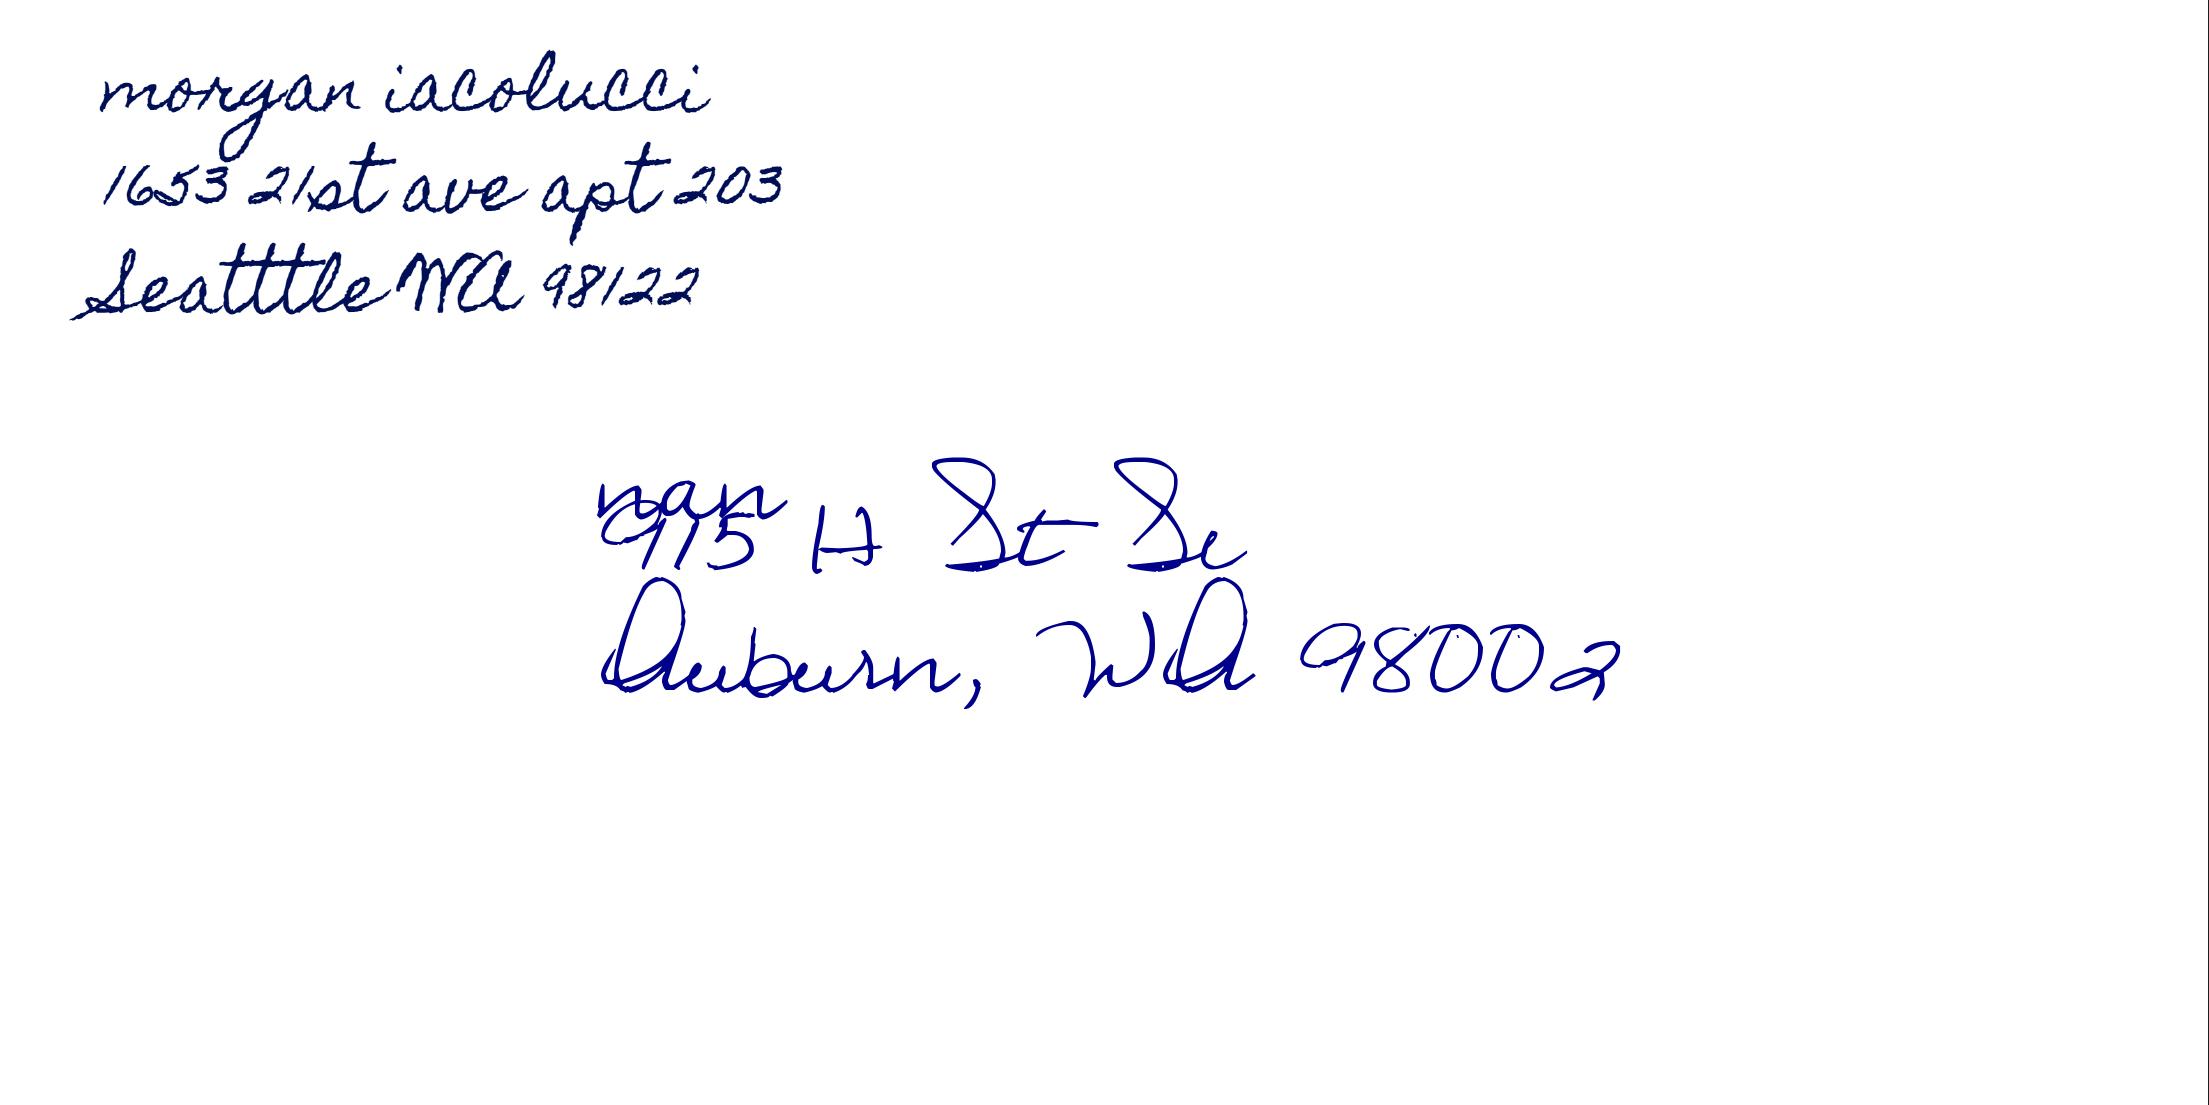 morgan iacolucci
1653 21st ave apt 203
Seatttle WA 98122
nan
915 H St Se
Auburn, WA 98002